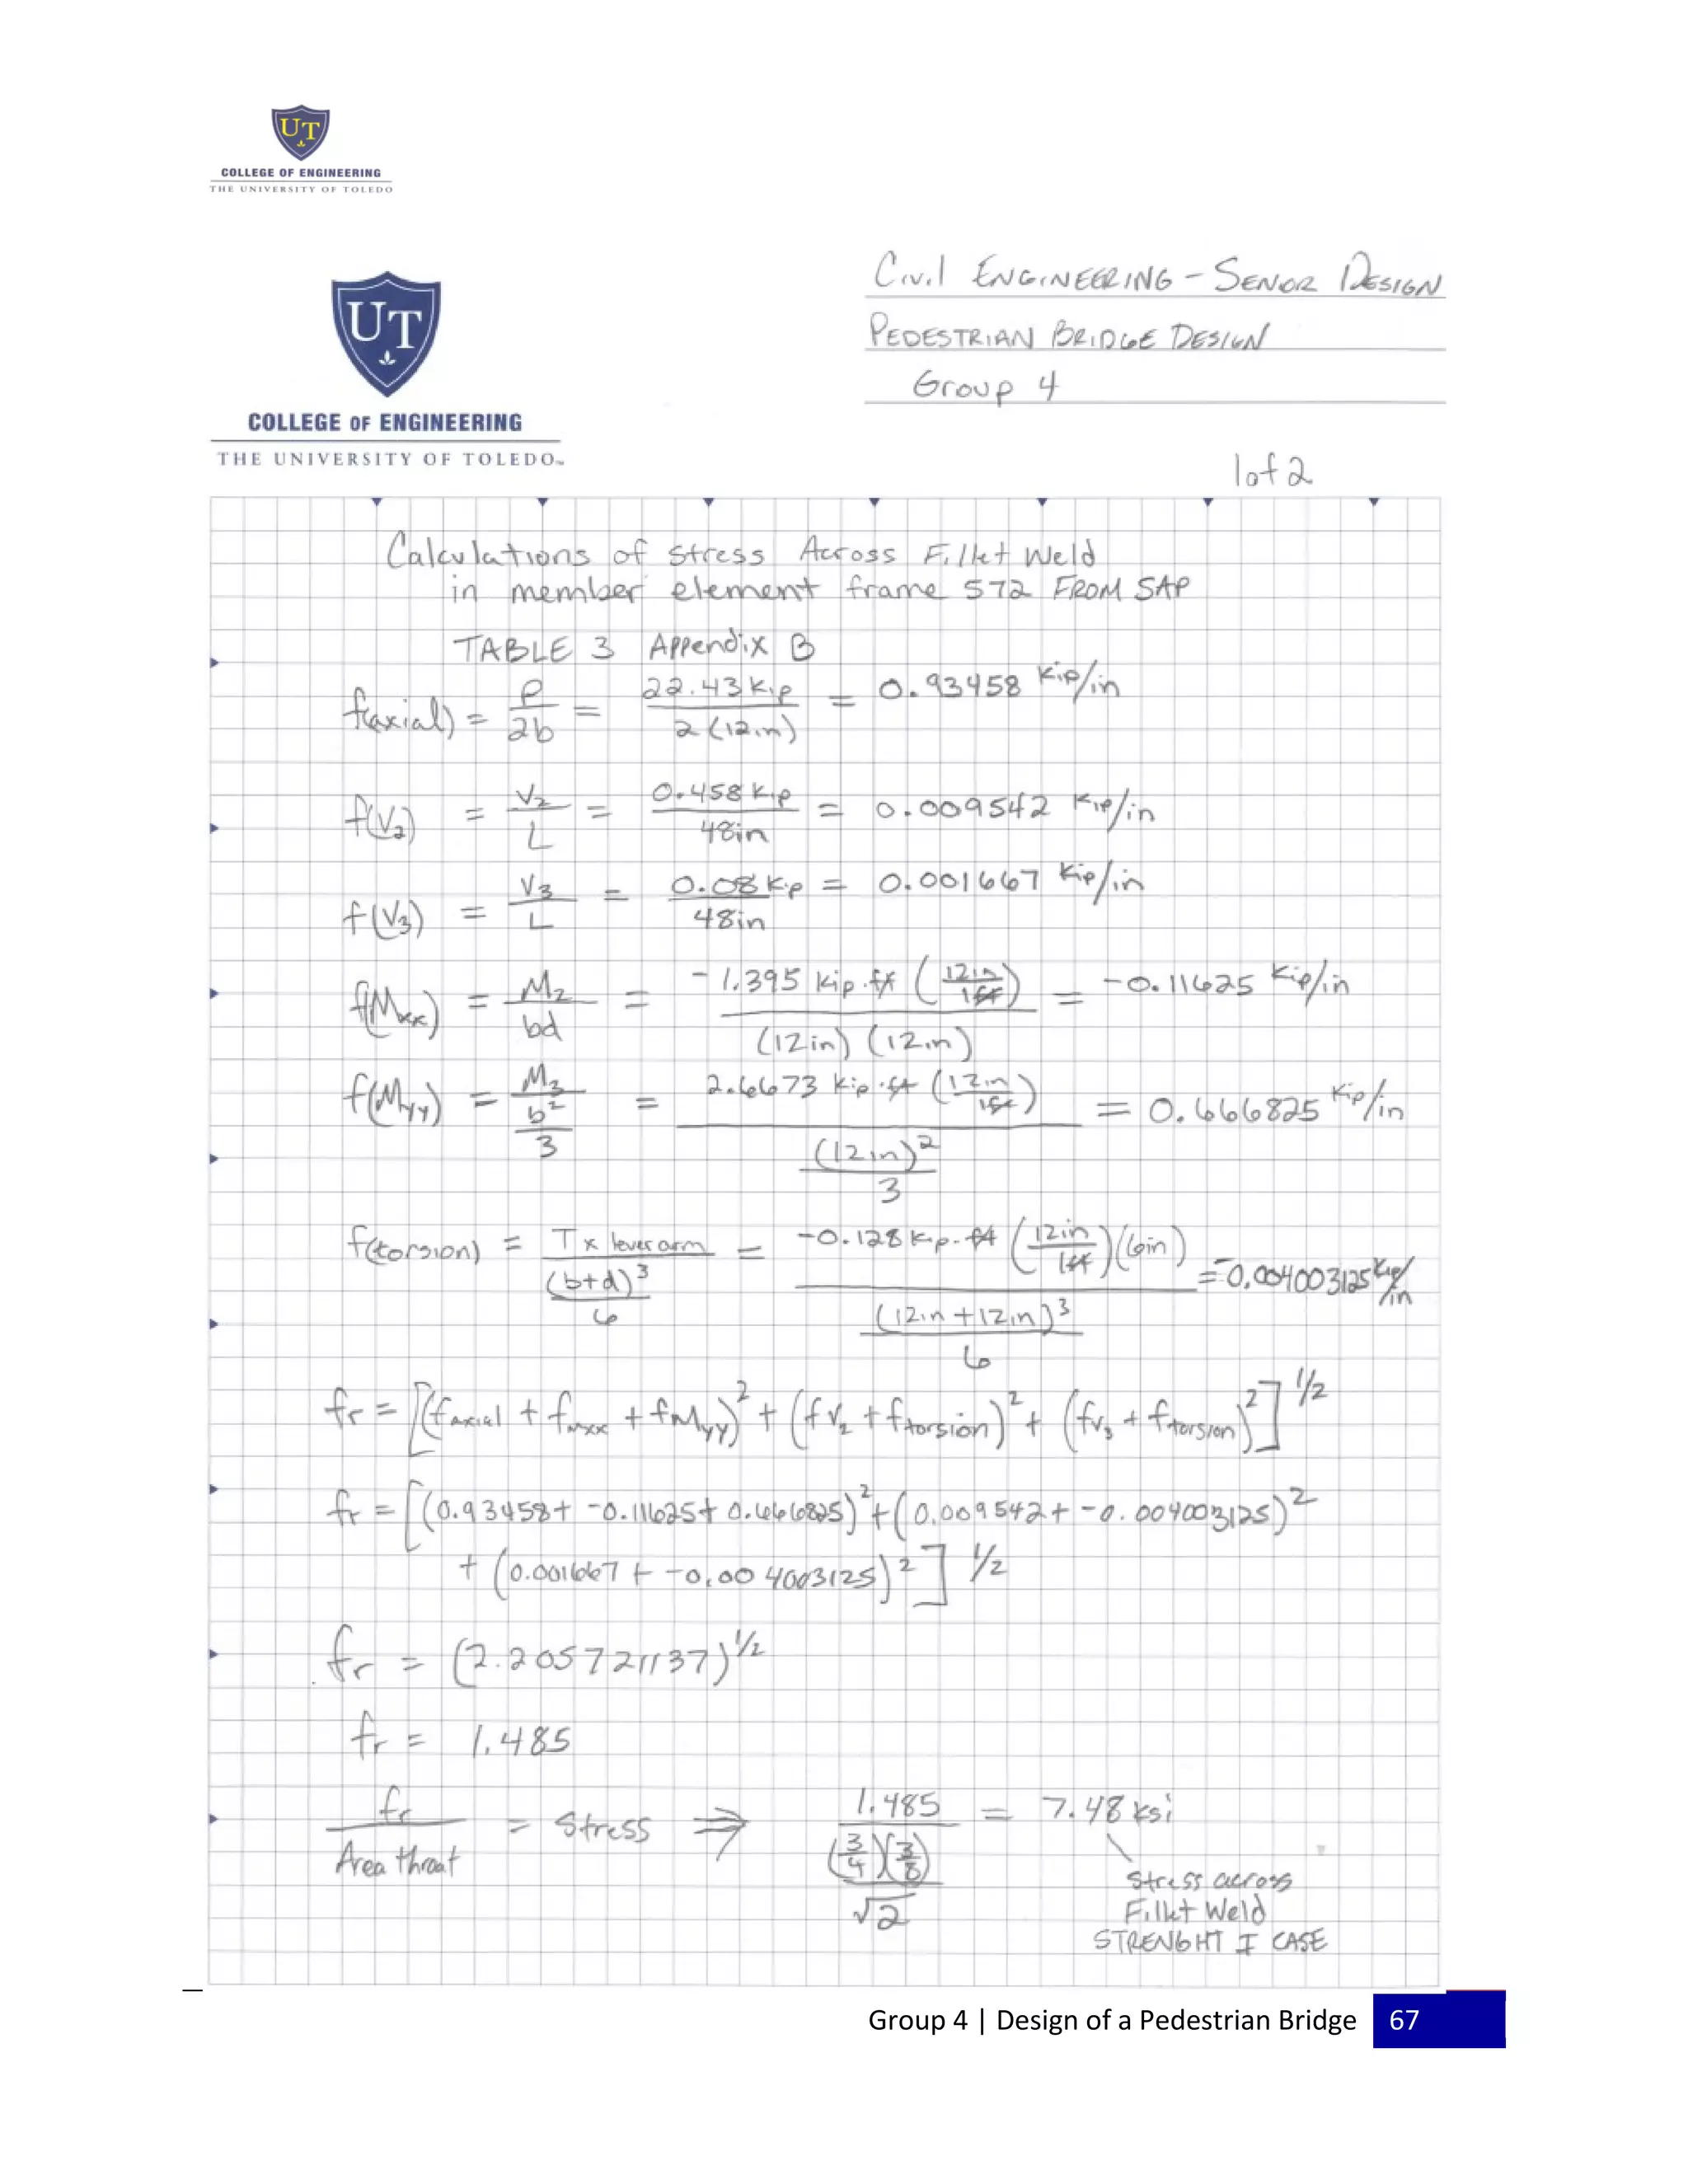 UT
COLLEGE OF ENGINEERING
THE UNIVERSITY OF TOLEDO
Civil ENGINEERING - SENIOR DESIGN
PEDESTRIAN BRIDGE DESIGN
Group 4
UT
COLLEGE OF ENGINEERING
THE UNIVERSITY OF TOLEDO™
1 of 2
Calculations of stress Across Fillet Weld
in member element frame 572 FROM SAP
TABLE 3 Appendix B
f(axial) = P/2b = 22.43 kip / 2(12in) = 0.93458 kip/in
f(V2) = V2/L = 0.458 kip / 48in = 0.009542 kip/in
f(V3) = V3/L = 0.08 kip / 48in = 0.001667 kip/in
f(Mxx) = M2/bd = -1.395 kip·ft (12in/1ft) / (12in)(12in) = -0.11625 kip/in
f(Myy) = M3/(b²/3) = 2.6673 kip·ft (12in/1ft) / ((12in)²/3) = 0.666825 kip/in
f(torsion) = T x lever arm / ((b+d)³/6) = -0.128 kip-ft (12in/1ft)(6in) / ((12in+12in)³/6) = -0.004003125 kip/in
fr = [(faxial + fmxx + fMyy)² + (fV2 + ftorsion)² + (fV3 + ftorsion)²]^1/2
fr = [(0.93458 + -0.11625 + 0.666825)² + (0.009542 + -0.004003125)²
+ (0.001667 + -0.004003125)²]^1/2
fr = (2.205721137)^1/2
fr = 1.485
fr / Area throat = Stress ⇒ 1.485 / ((3/4)(3/8)/√2) = 7.48 ksi
Stress across
Fillet Weld
STRENGHT I CASE
Group 4 | Design of a Pedestrian Bridge 67